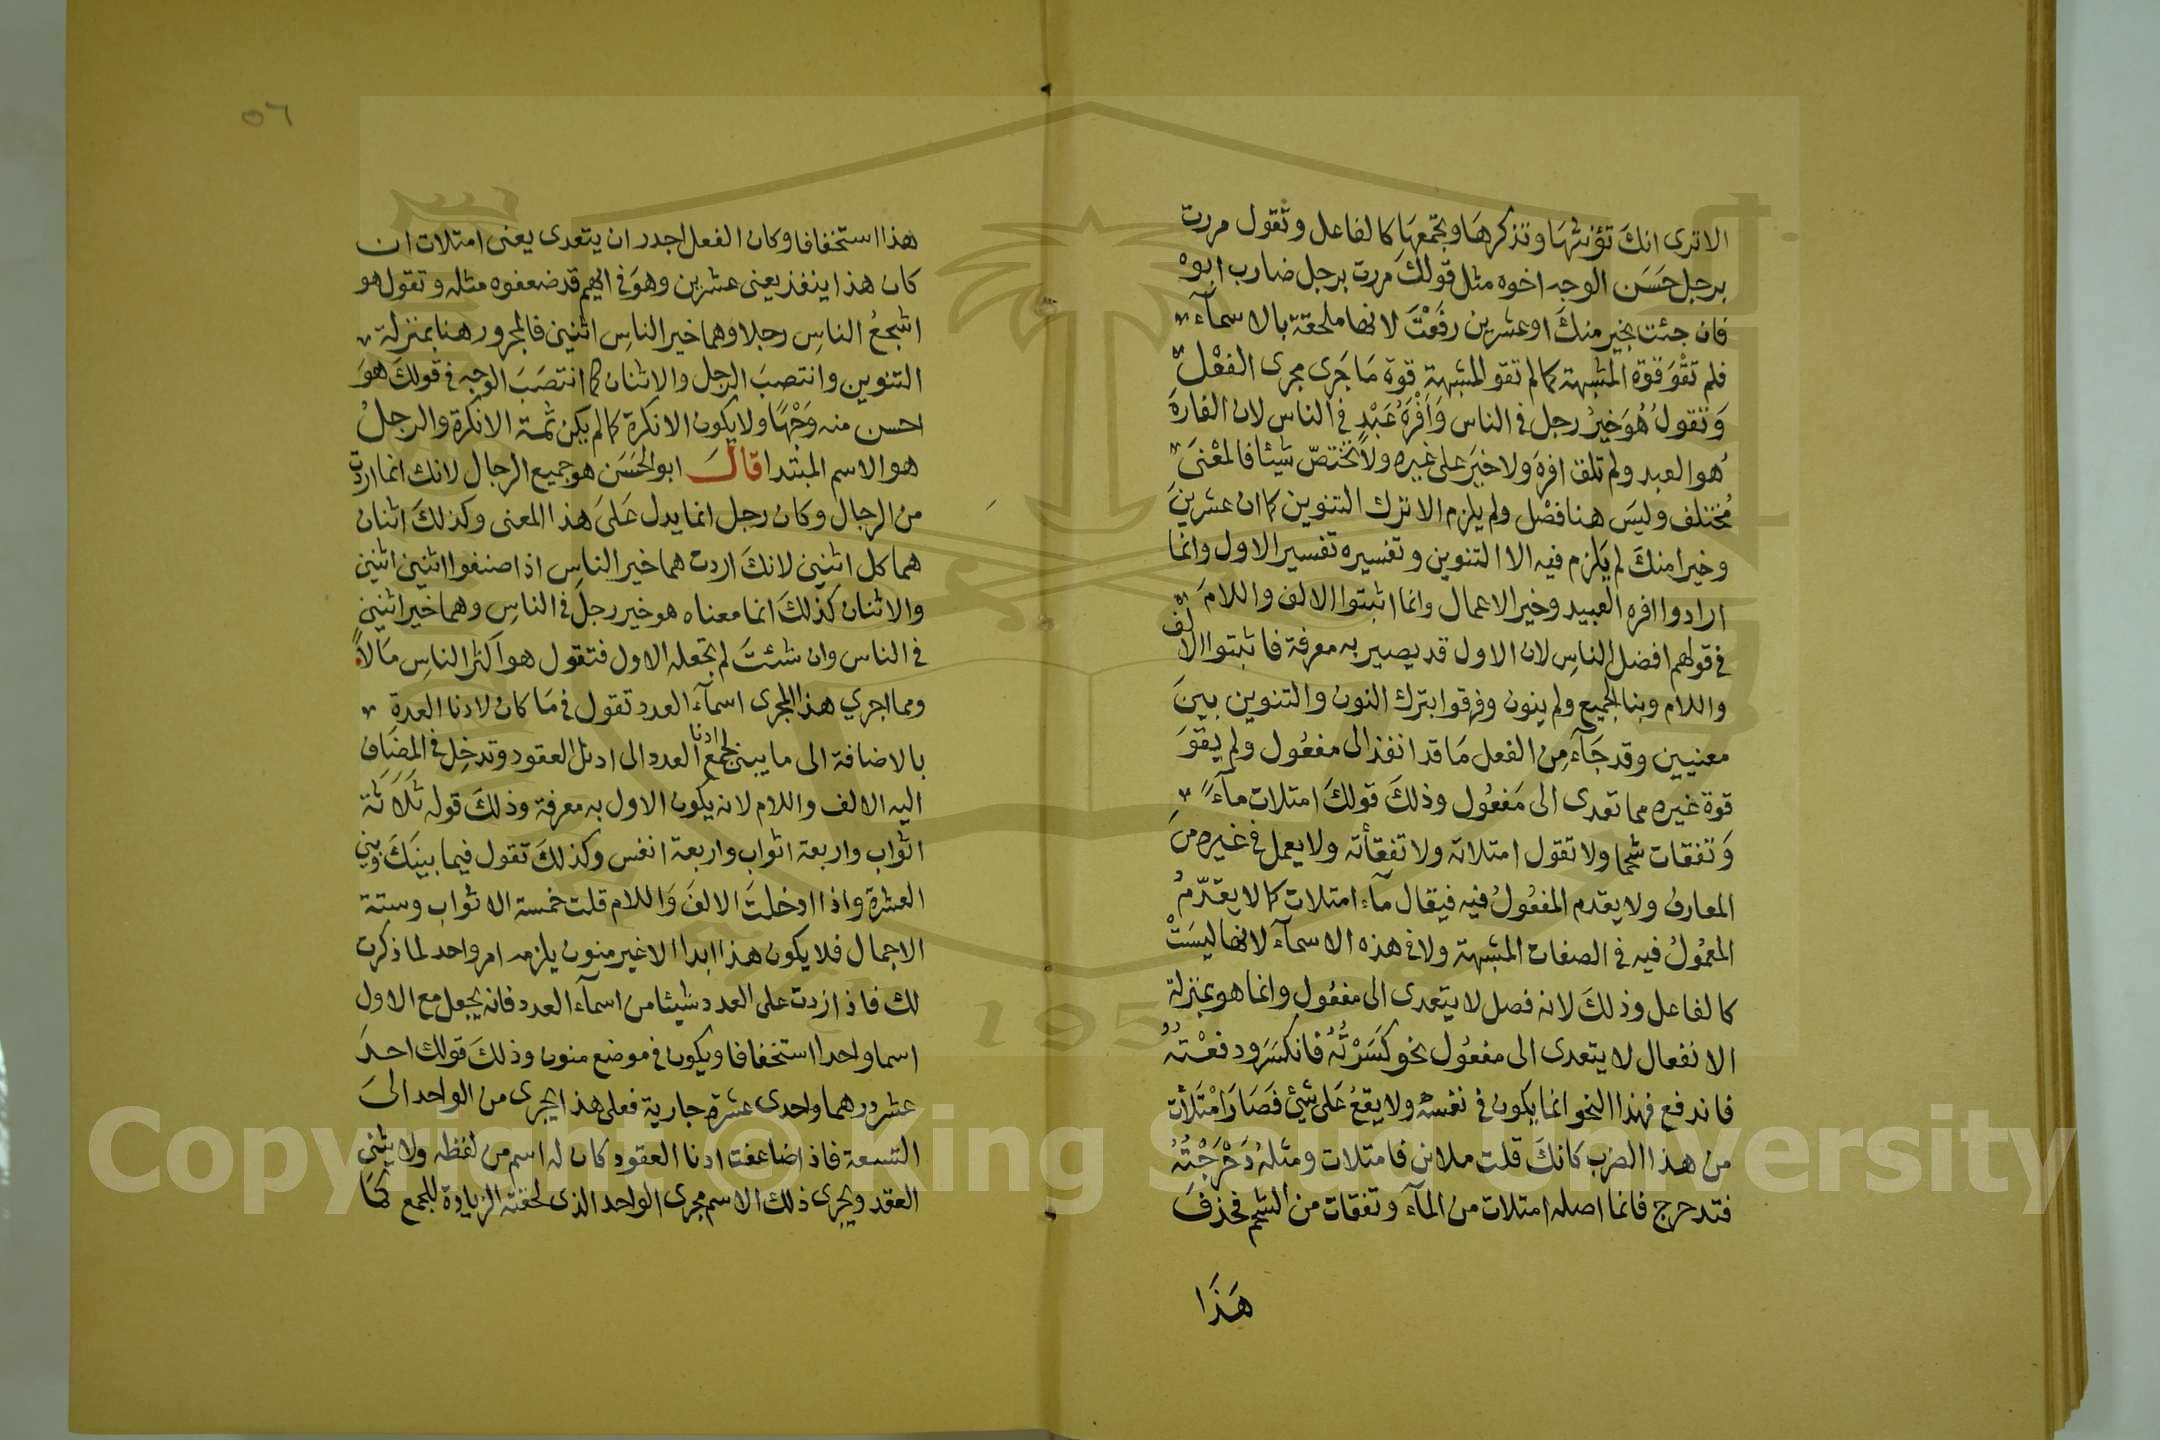 الاترى انكَ تؤنثهَا وتذكرهَا وتجمعهَا كالفاعل وتقول مررت
برجل حَسَن الوجه اخوه مثل قولكَ مررت برجل ضارب ابوه
فان جئت بخير منكَ اوعشرين رفَعْتَ لانها ملحقة بالاسمآء
فلم تقْوَ قوّة المشبهة كما لم تقو المشبهة قوة مَاجَرى مجرى الفعْل
وَتقولُ هُوَ خيرُ رجل فى الناس وَاَفْرَهُ عَبْدٍ فى الناس لان الفارهَ
هُوالعبد ولم تلق افرهَ ولاخيَر على غيره ولا تختصّ شيئا فالمعْنىَ
مُختلف وليسَ هنا فصْل ولم يلزم الا ترك التنوين كما ان عشرينَ
وخيرا منكَ لم يَلزم فيه الا التنوين وتفسيره تفسير الاول وانما
ارادوا افره العبيد وخير الاعمال وانما اثبتوا الالف واللامَ
فى قولهم افضل الناسِ لان الاول قد يصير به معرفة فاثبتوا الالف
واللام وبنا الجميع ولم ينون وفرقوا بترك النون والتنوين بينَ
معنيين وقد جَآءَ مِن الفعل مَا قد انفذ الى مفعُول ولم يقْوَ
قوة غيره مما تعدى الى مَفعُول وذلكَ قولكَ امتلات مآءً
وَتفقات شحما ولا تقول امتلاته ولا تفقأته ولا يعمل فى غيره منَ
المعارف ولا يقدم المفعُولُ فيه فيقال مآء امتلات كما لا يقدّمُ
المعمُولُ فيه فى الصفات المشبهة ولا فى هذه الاسمآء لانها ليسَتْ
كالفاعل وذلكَ لانه فصل لا يتعدى الى مفعُول وانما هو بمنزلة
الانفعال لا يتعدى الى مفعُول نحو كَسَرْتُهُ فانكسَرَ ودفعْتُهُ
فاندفع فهذا النحو انما يكون فى نفسه ولا يقعُ عَلى شيئٍ فَصَارَ امْتَلأت
من هذا الضرب كانكَ قلت ملانى فامتلات ومثلهُ دَحْرَجْتُهُ
فتدحرج فانما اصله امتلات من المآء وتفقات من الشحم فحذفَ
هَذَا
٥٦
هذا استخفافا وكان الفعل اجدر ان يتعدى يعنى امتلات ان
كان هذا ينفذ يعنى عشرين وهوَ فى انهم قد ضعفوه مثله وتقول هو
اشجعُ الناسِ رجلا وهما خير الناسِ اثنين فالمجرور هنا بمنزلة
التنوين وانتصبَ الرجل والاثنان كما انتصَبَ الوجه فى قولكَ هوَ
احسن منه وَجْهًا ولا يكون الا نكرة كما لم يكن ثمة الا نكرة والرجلْ
هو الاسم المبتدا قالَ ابو الحَسَن هو جميع الرجال لانك انما اردتَ
من الرجال وكان رجل انما يدل عَلىَ هذا المعنى وكذلكَ اثنان
هما كل اثنين لانكَ اردت هما خير الناسِ اذا صنفوا اثنين اثنين
والاثنان كذلكَ انما معناه هو خير رجل فى الناسِ وهما خير اثنين
فى الناس وان شئتَ لم تجعله الاول فتقول هو اكثر الناسِ مَالاً
ومما اجري هذا المجرى اسمآءَ العدد تقول فى مَا كان لادنا العدةِ
بالاضافة الى ما يبنى لجمع ادنا العدد الى ادنى العقود وتدخِل فى المضاف
اليه الالف واللام لانه يكون الاول به معرفة وذلكَ قوله ثَلاَثَة
اثواب واربعة اثواب واربعة انفس وكذلكَ تقول فيما بينَكَ وبينَ
العشرة واذا ادخلتَ الالفَ وَاللام قلت خمسة الاثواب وستة
الاجمال فلا يكون هذا ابدا الا غير منون يلزمه امر واحد لما ذكرت
لك فاذا زدت على العدد شيئا من اسمآء العدد فانه يجعل مع الاول
اسما واحدا استخفافا ويكون فى موضع منون وذلكَ قولك احدَ
عشر درهما واحدى عشرة جارية فعلى هذا يجرى من الواحد الىَ
التسعة فاذا ضاعفت ادنا العقود كان له اسم من لفظه ولا يثنى
العقد ويجرى ذلك الاسم مجرى الواحد الذى لحقته الزيادة للجمع كمَا
Copyright © King Saud University
195